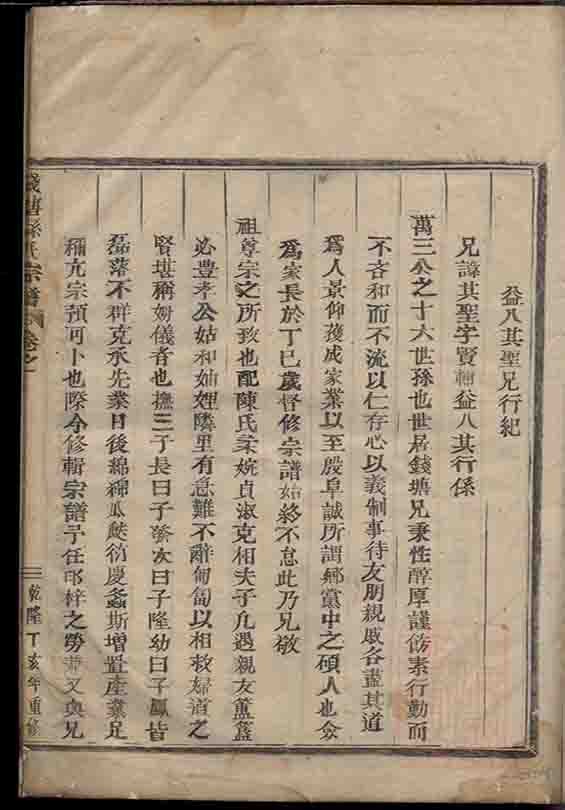 益八其聖兄行紀
兄諱其聖字賢輔益八其行係
萬三公之十六世孫也世居錢塘兄秉性醇厚謹飭素行勤而
不吝和而不流以仁存心以義制事待友朋親戚各盡其道
爲人景仰獲成家業以至殷阜誠所謂鄉黨中之碩人也僉
爲家長於丁巳歲督修宗譜始終不怠此乃兄敬
祖尊宗之所致也配陳氏柔婉貞淑克相夫子凡遇親友簠簋
必豐孝公姑和妯娌隣里有急難不辭匍匐以相救婦道之
賢堪稱姆儀者也撫三子長曰子 次曰子隆幼曰子鳳皆
磊落不群克承先業日後綿綿瓜瓞衍慶螽斯增置產業足
稱亢宗預可卜也際今修輯宗譜予任 梓之勞 又與兄
錢塘孫氏宗譜 卷之一
乾隆丁亥年重修